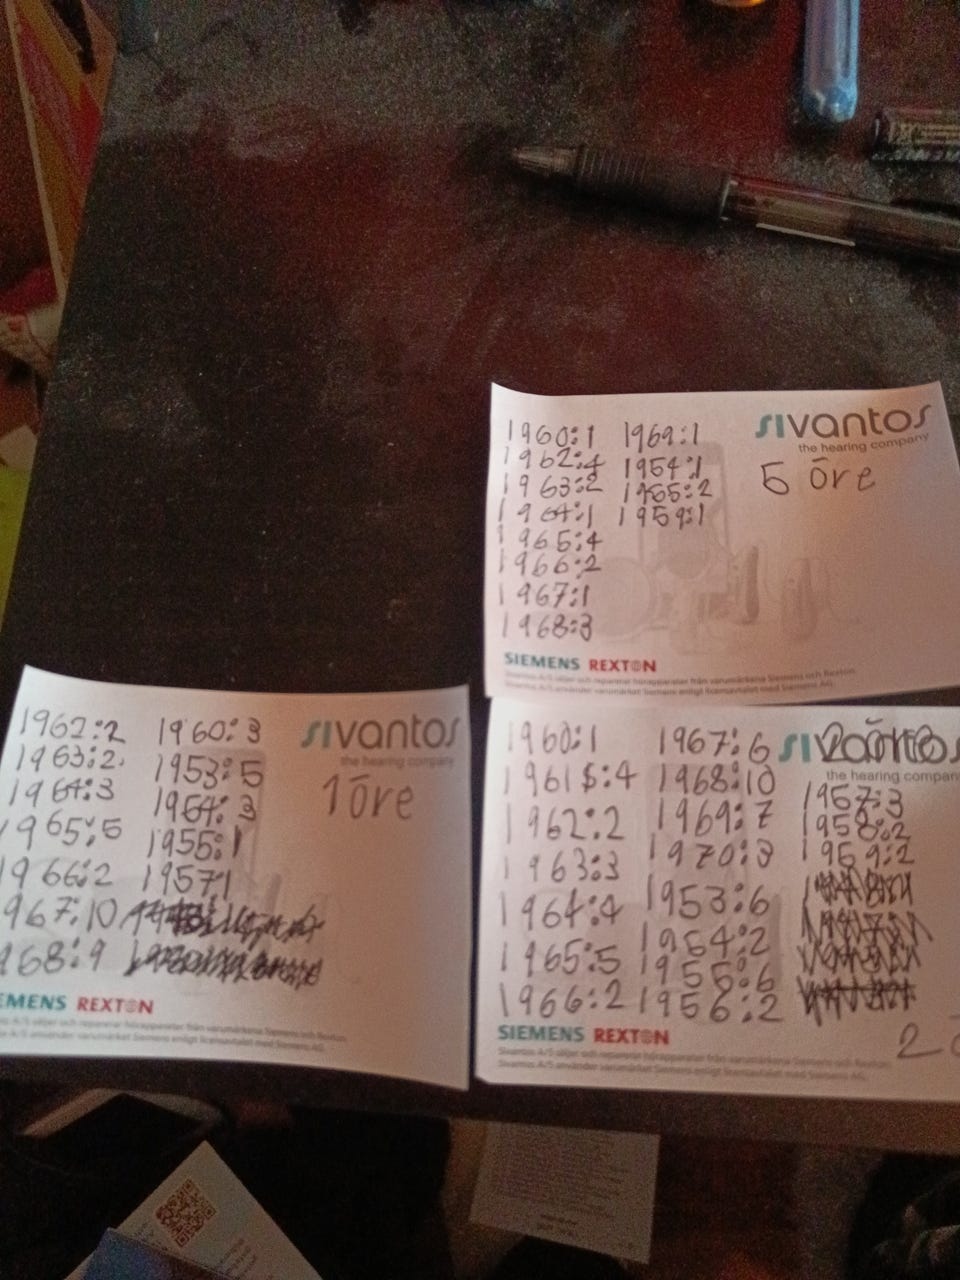 1960:1 1969:1
1962:4 1954:1
1963:2 1955:2
1964:1 1959:1
1965:4
1966:2
1967:1
1968:3
sivantos
the hearing company
5 öre
SIEMENS REXTON
Sivantos A/S säljer och reparerar hörapparater från varumärkena Siemens och Rexton.
Sivantos A/S använder varumärket Siemens enligt licensavtalet med Siemens AG.
1962:2 1960:3
1963:2 1953:5
1964:3 1954:3
1965:5 1955:1
1966:2 1957:1
1967:10
968:9
sivantos
the hearing company
1 öre
EMENS REXTON
A/S säljer och reparerar hörapparater från varumärkena Siemens och Rexton.
A/S använder varumärket Siemens enligt licensavtalet med Siemens AG.
1960:1 1967:6
1961$:4 1968:10
1962:2 1969:7
1963:3 1970:3
1964:4 1953:6
1965:5 1954:2
1966:2 1955:6
1956:2
sivantos
the hearing company
1957:3
1958:2
1959:2
2
SIEMENS REXTON
Sivantos A/S säljer och reparerar hörapparater från varumärkena Siemens och Rexton.
Sivantos A/S använder varumärket Siemens enligt licensavtalet med Siemens AG.